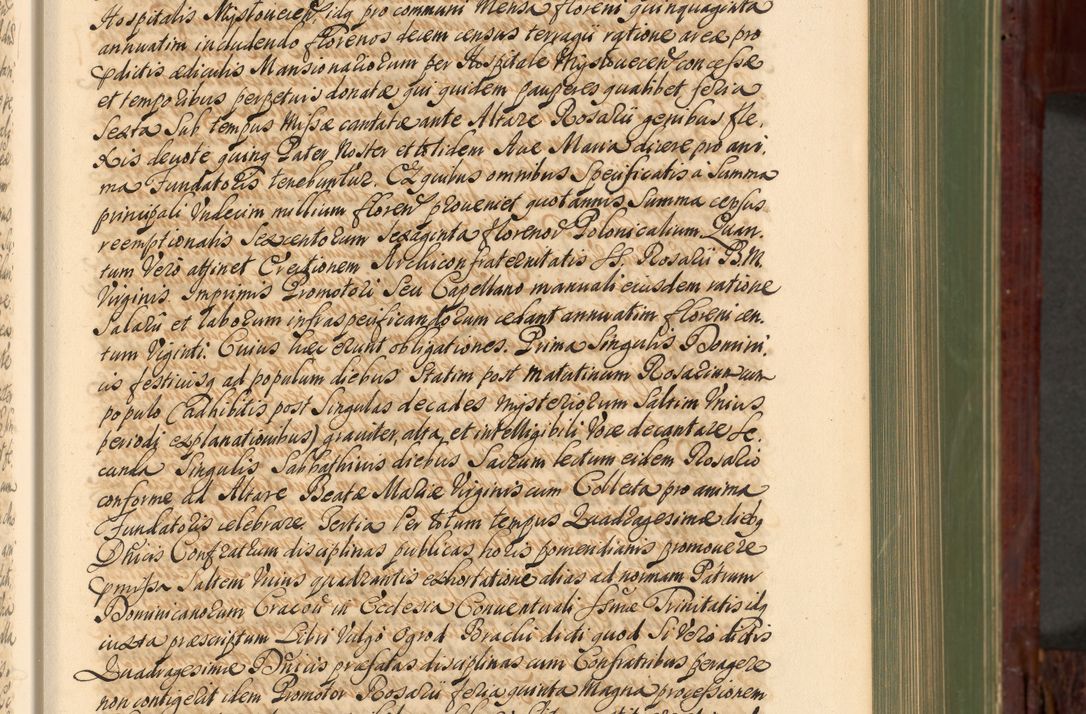 Hospitalis Mysłovicen idq pro communi Mensa floreni quinquaginta
annuatim includendo florenos decem census terragii ratione areæ pro
pdictis ædiculis Mansionariorum per Hospitale Mysłovicen concessæ
et temporibus perpetuis donatæ qui quidem pauperes qualibet feria
sexta sub tempus Missæ cantatæ ante Altare Rosarii genibus fle,
xis devote quinq Pater Noster et totidem Ave Maria dicere pro ani,
ma Fundatoris tenebuntur. Ex quibus omnibus Specificatis à Summa
principali Undecim millium floren proveniet quotannis Summa census
reemptionalis Sexcentorum Sexaginta florenor Polonicalium. Quan,
tum Vero attinet Erectionem Archiconfraternitatis SS. Rosarii B.M.
Virginis. Imprimis Promotori Seu Capellano manuali eiusdem ratione
Salarii et laborum infraspecificandorum cedant annuatim floreni cen,
tum Viginti. Cuius hæc erunt obligationes. Prima Singulis Domini,
cis festivisq ad populum diebus Statim post Matutinum Rosarium cum
populo (adhibitis post Singulas decades mysteriorum Saltim Unius
periodi explanationibus) graviter alta, et intelligibili Voce decantare Se,
cunda Singulis Sabbathivis diebus Sacrum lectum eidem Rosario
conforme ad Altare Beatæ Mariæ Virginis cum Collecta pro anima
Fundatoris celebrare. Tertia Per totum tempus Quadragesimæ diebq
Dnicis Confratrum disciplinas publicas horis pomeridianis promovere
pmissa Saltem Unius quadrantis exhortatione alias ad normam Patrum
Dominicanorum Cracov in Ecclesia Conventuali SSmæ Trinitatis idq
iuxta præscriptum Libri Vulgo Ogrod Braclii dicti quod Si Vero dictis
Quadragesimæ Dnicis præfatas disciplinas cum Confratribus peragere
non contigerit idem Promotor Rosarii feria quinta Magna processionem